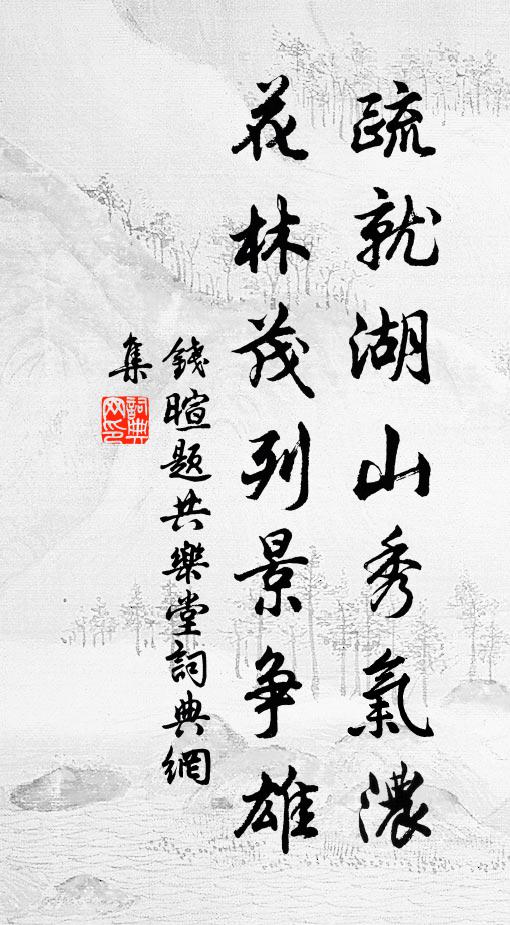 疏就湖山秀氣濃
花林茂列景爭雄
錢暄題共樂堂詞典網
集
詞典網印